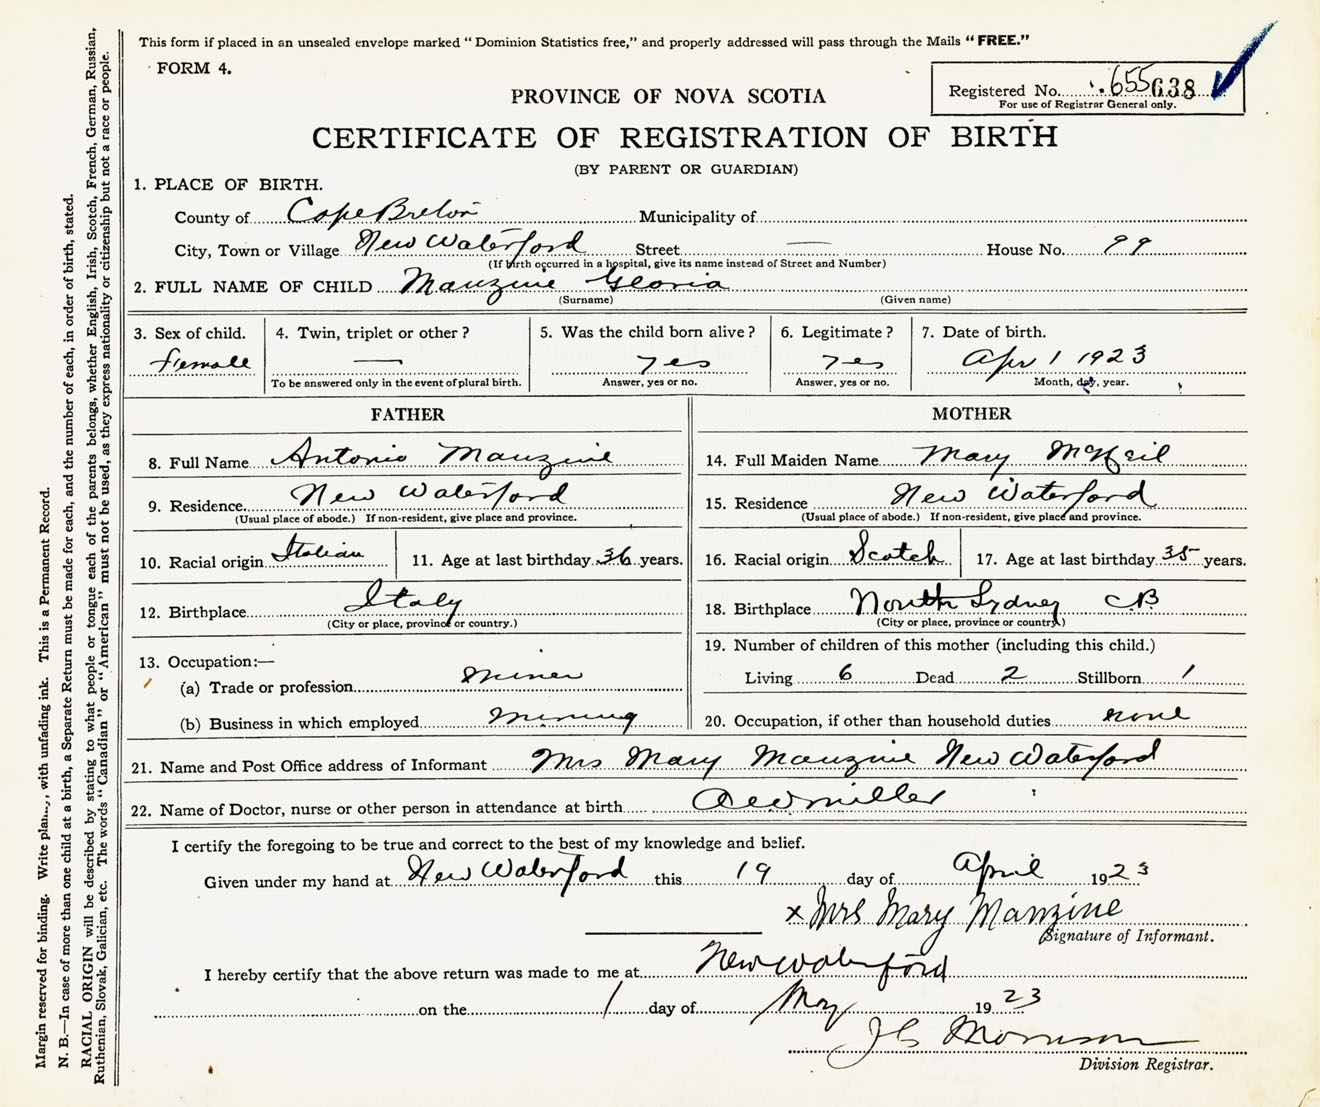 This form if placed in an unsealed envelope marked "Dominion Statistics free," and properly addressed will pass through the Mails "FREE."
FORM 4.
Registered No. 655638
For use of Registrar General only.
PROVINCE OF NOVA SCOTIA
CERTIFICATE OF REGISTRATION OF BIRTH
(BY PARENT OR GUARDIAN)
1. PLACE OF BIRTH.
County of Cape Breton Municipality of
City, Town or Village New Waterford Street — House No. 99
(If birth occurred in a hospital, give its name instead of Street and Number)
2. FULL NAME OF CHILD Manzine Gloria
(Surname) (Given name)
3. Sex of child. 4. Twin, triplet or other? 5. Was the child born alive? 6. Legitimate? 7. Date of birth.
Female — yes yes Apr 1 1923
To be answered only in the event of plural birth. Answer, yes or no. Answer, yes or no. Month, day, year.
FATHER
8. Full Name Antonio Manzine
9. Residence New Waterford
(Usual place of abode.) If non-resident, give place and province.
10. Racial origin Italian 11. Age at last birthday 36 years.
12. Birthplace Italy
(City or place, province or country.)
13. Occupation:—
(a) Trade or profession Miner
(b) Business in which employed Mining
MOTHER
14. Full Maiden Name Mary McNeil
15. Residence New Waterford
(Usual place of abode.) If non-resident, give place and province.
16. Racial origin Scotch 17. Age at last birthday 35 years.
18. Birthplace North Sydney C.B
(City or place, province or country.)
19. Number of children of this mother (including this child.)
Living 6 Dead 2 Stillborn 1
20. Occupation, if other than household duties none
21. Name and Post Office address of Informant Mrs Mary Manzine New Waterford
22. Name of Doctor, nurse or other person in attendance at birth miller
I certify the foregoing to be true and correct to the best of my knowledge and belief.
Given under my hand at New Waterford this 19 day of April 1923
x Mrs Mary Manzine
Signature of Informant.
I hereby certify that the above return was made to me at New Waterford
on the 1 day of May 1923
Morrison
Division Registrar.
Margin reserved for binding. Write plainly, with unfading ink. This is a Permanent Record.
N. B.—In case of more than one child at a birth, a Separate Return must be made for each, and the number of each, in order of birth, stated.
RACIAL ORIGIN will be described by stating to what people or tongue each of the parents belongs, whether English, Irish, Scotch, French, German, Russian,
Ruthenian, Slovak, Galician, etc. The words "Canadian" or "American" must not be used, as they express nationality or citizenship but not a race or people.